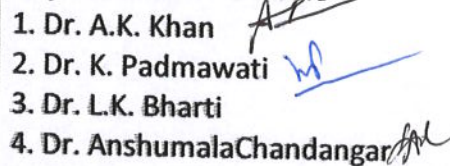 1. Dr. A.K. Khan
2. Dr. K. Padmawati
3. Dr. L.K. Bharti
4. Dr. AnshumalaChandangar